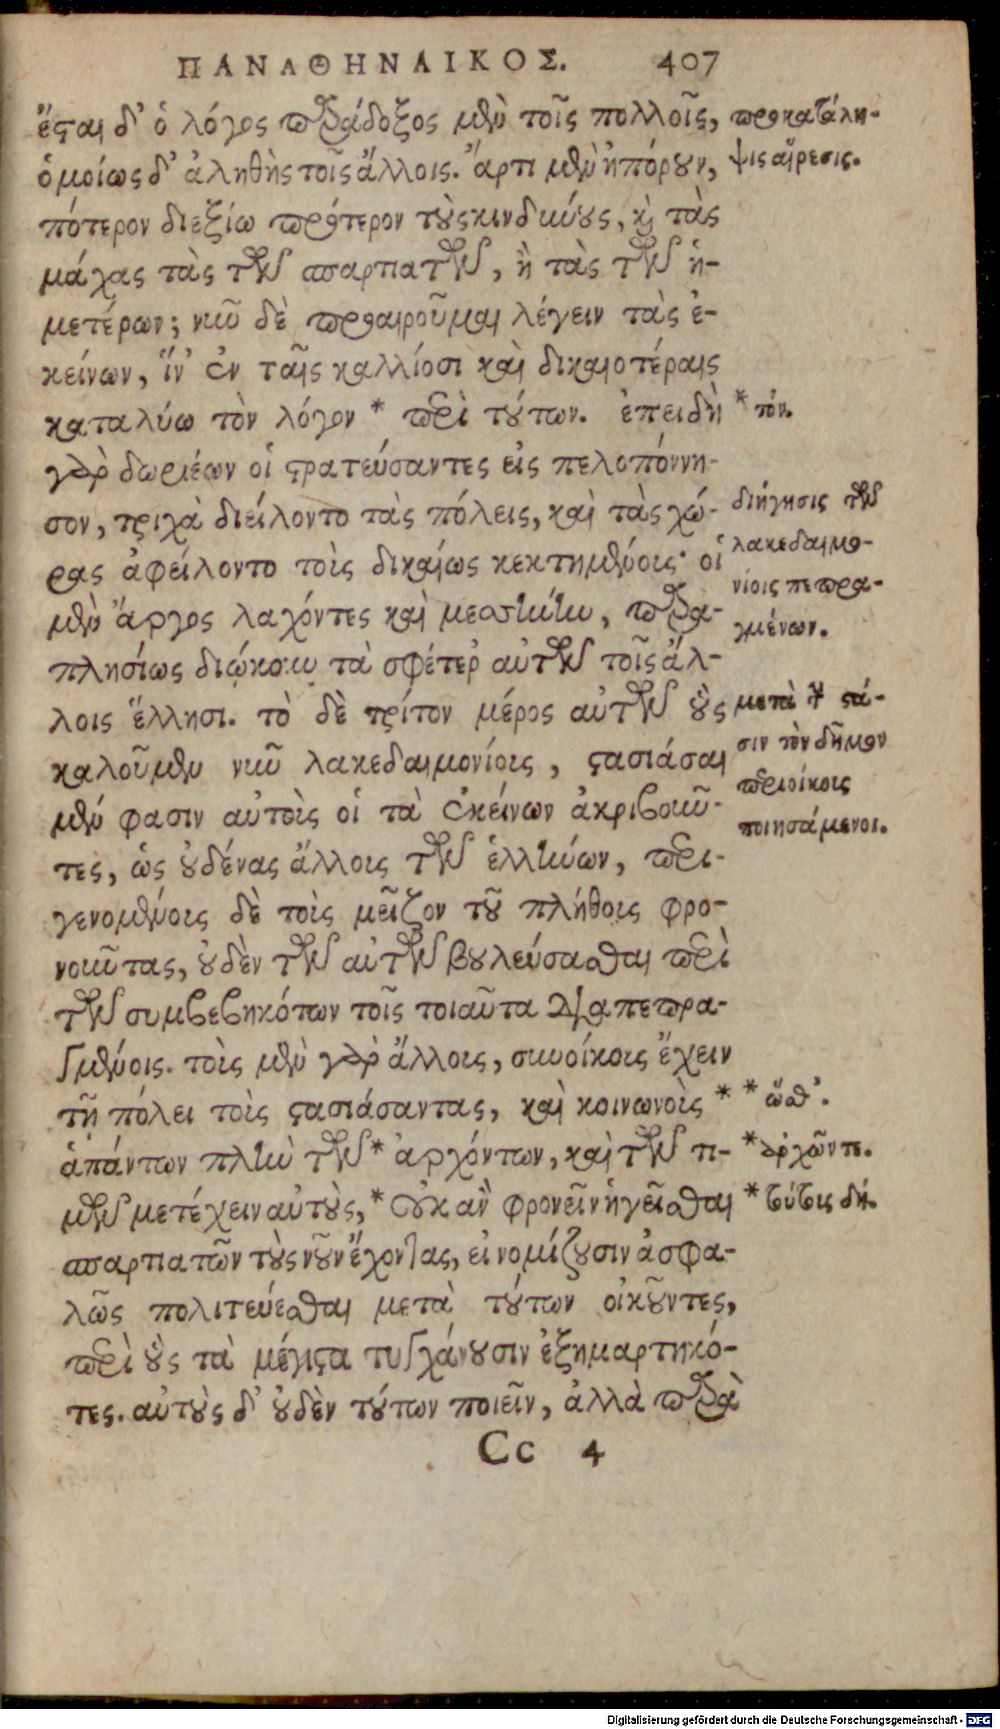 ΠΑΝΑΘΗΝΑΙΚΟΣ. 407
ἔσται δ' ὁ λόγος παράδοξος μὲν τοῖς πολλοῖς,
ὁμοίως δ' ἀληθὴς τοῖς ἄλλοις. Ἄρτι μὲν ἠπόρουν,
πότερον διεξίω πρότερον τοὺς κινδύνους, καὶ τὰς
μάχας τὰς τῶν σπαρτιατῶν, ἢ τὰς τῶν ἡ-
μετέρων; νῦν δὲ προαιροῦμαι λέγειν τὰς ἐ-
κείνων, ἵν' ἐν ταῖς καλλίοσι καὶ δικαιοτέραις
καταλύω τὸν λόγον * περὶ τούτων. ἐπειδὴ
γὰρ δωριέων οἱ στρατεύσαντες εἰς πελοπόννη-
σον, τριχὰ διείλοντο τὰς πόλεις, καὶ τὰς χώ-
ρας ἀφείλοντο τοὶς δικαίως κεκτημένοις· οἱ
μὲν ἄργος λαχόντες καὶ μεσσήνην, παρα-
πλησίως διῴκουν τὰ σφέτερ' αὐτῶν τοῖς ἄλ-
λοις ἕλλησι. τὸ δὲ τρίτον μέρος αὐτῶν οὓς
καλοῦμεν νῦν λακεδαιμονίοις, στασιάσαι
μέν φασιν αὐτοὶς οἱ τὰ ἐκείνων ἀκριβοῦν-
τες, ὡς οὐδένας ἄλλοις τῶν ἑλλήνων, περι-
γενομένοις δὲ τοὶς μεῖζον τοῦ πλήθοις φρο-
νοῦντας, οὐδὲν τῶν αὐτῶν βουλεύσασθαι περὶ
τῶν συμβεβηκότων τοῖς τοιαῦτα διαπεπρα-
γμένοις. τοὶς μὲν γὰρ ἄλλοις, συνοίκοις ἔχειν
τῇ πόλει τοὶς στασιάσαντας, καὶ κοινωνοὶς *
ἁπάντων πλὴν τῶν * ἀρχόντων, καὶ τῶν τι-
μῶν μετέχειν αὐτοὺς, * Οὐκ ἂν φρονεῖν ἡγεῖσθαι
σπαρτιατῶν τοὺς νοῦν ἔχοντας, εἰ νομίζουσιν ἀσφα-
λῶς πολιτεύεσθαι μετὰ τούτων οἰκοῦντες,
περὶ οὓς τὰ μέγιστα τυγχάνουσιν ἐξημαρτηκό-
τες. αὐτοὺς δ' οὐδὲν τούτων ποιεῖν, ἀλλὰ παρὰ
Cc 4
προκατάλη-
ψις αἵρεσις.
* τόν.
διήγησις τῶν
λακεδαιμο-
νίοις πεπρα-
γμένων.
μετὰ τὴν στά-
σιν τὸν δῆμον
περιοίκοις
ποιησάμενοι.
* ὥσθ'.
* ἀρχῶν π.
* τούτοις δή.
Digitalisierung gefördert durch die Deutsche Forschungsgemeinschaft - DFG